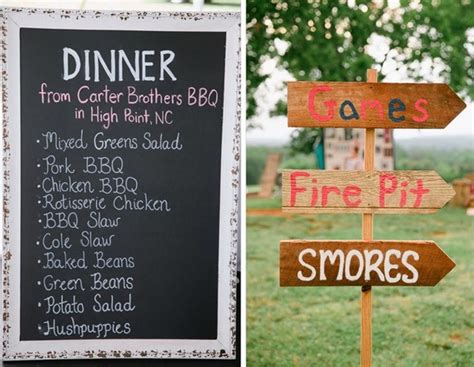 DINNER
from Carter Brothers BBQ
in High Point, NC
• Mixed Greens Salad
• Pork BBQ
• Chicken BBQ
• Rotisserie Chicken
• BBQ Slaw
• Cole Slaw
• Baked Beans
• Green Beans
• Potato Salad
• Hushpuppies
Games
Fire Pit
SMORES